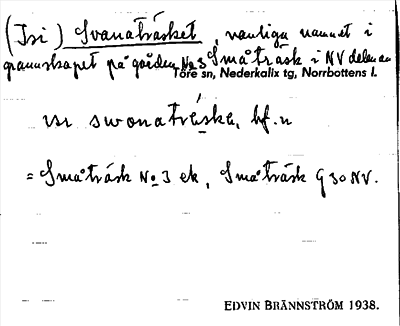 (Isi) Svanaträsket, vanliga namnet i
grannskapet på gården No 3 Småträsk i NV delen av
Töre sn, Nederkalix tg, Norrbottens l.
ısı swonatrɛ́skə, bf. n
= Småträsk No 3 ek, Småträsk G 30 NV.
EDVIN BRÄNNSTRÖM 1938.